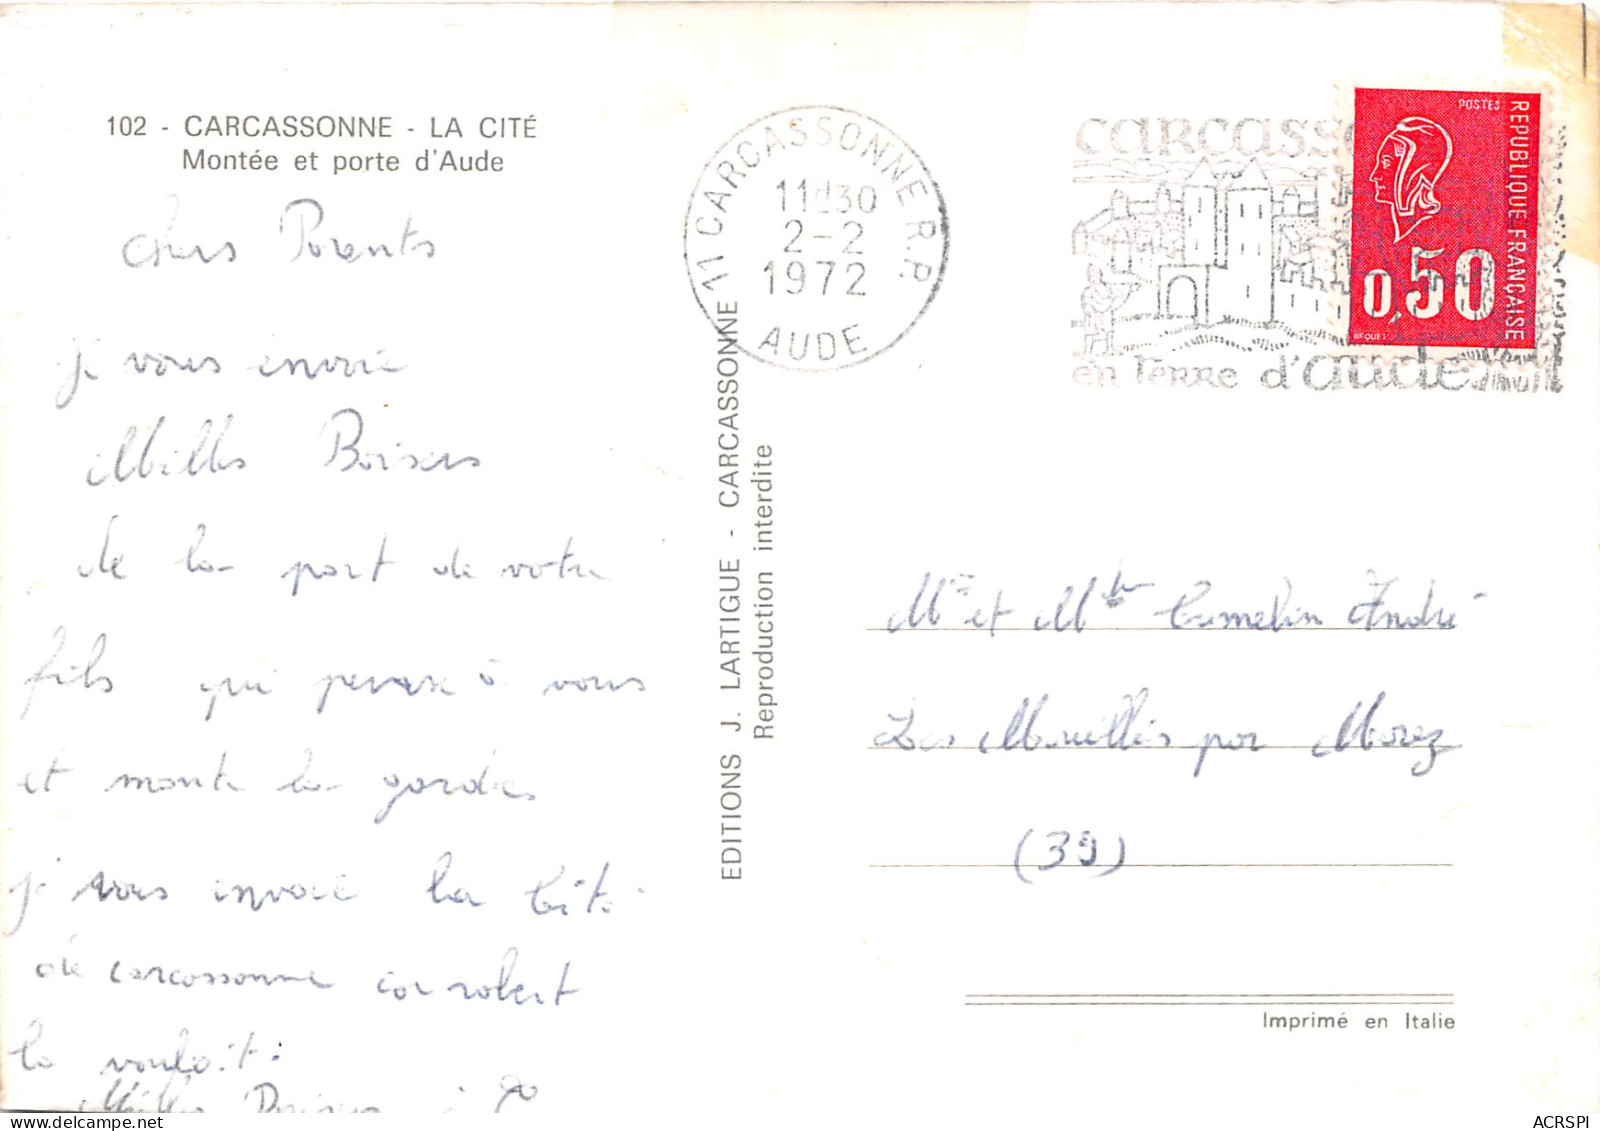 102 - CARCASSONNE - LA CITÉ
Montée et porte d'Aude
chers Parents
je vous envoie
Milles Baisers
de la part de votre
fils qui pense à vous
et monte la garde
je vous envoie la Cité
de carcassonne car robert
la voulait.
Milles Baisers à
EDITIONS J. LARTIGUE - CARCASSONNE
Reproduction interdite
11 CARCASSONNE R.P.
11H30
2-2
1972
AUDE
carcasso
en Terre d'aude
POSTES
REPUBLIQUE FRANÇAISE
0,50
BEQUET
Mr et Mme Camelin André
Les Marillis par Morez
(39)
Imprimé en Italie
ACRSPI